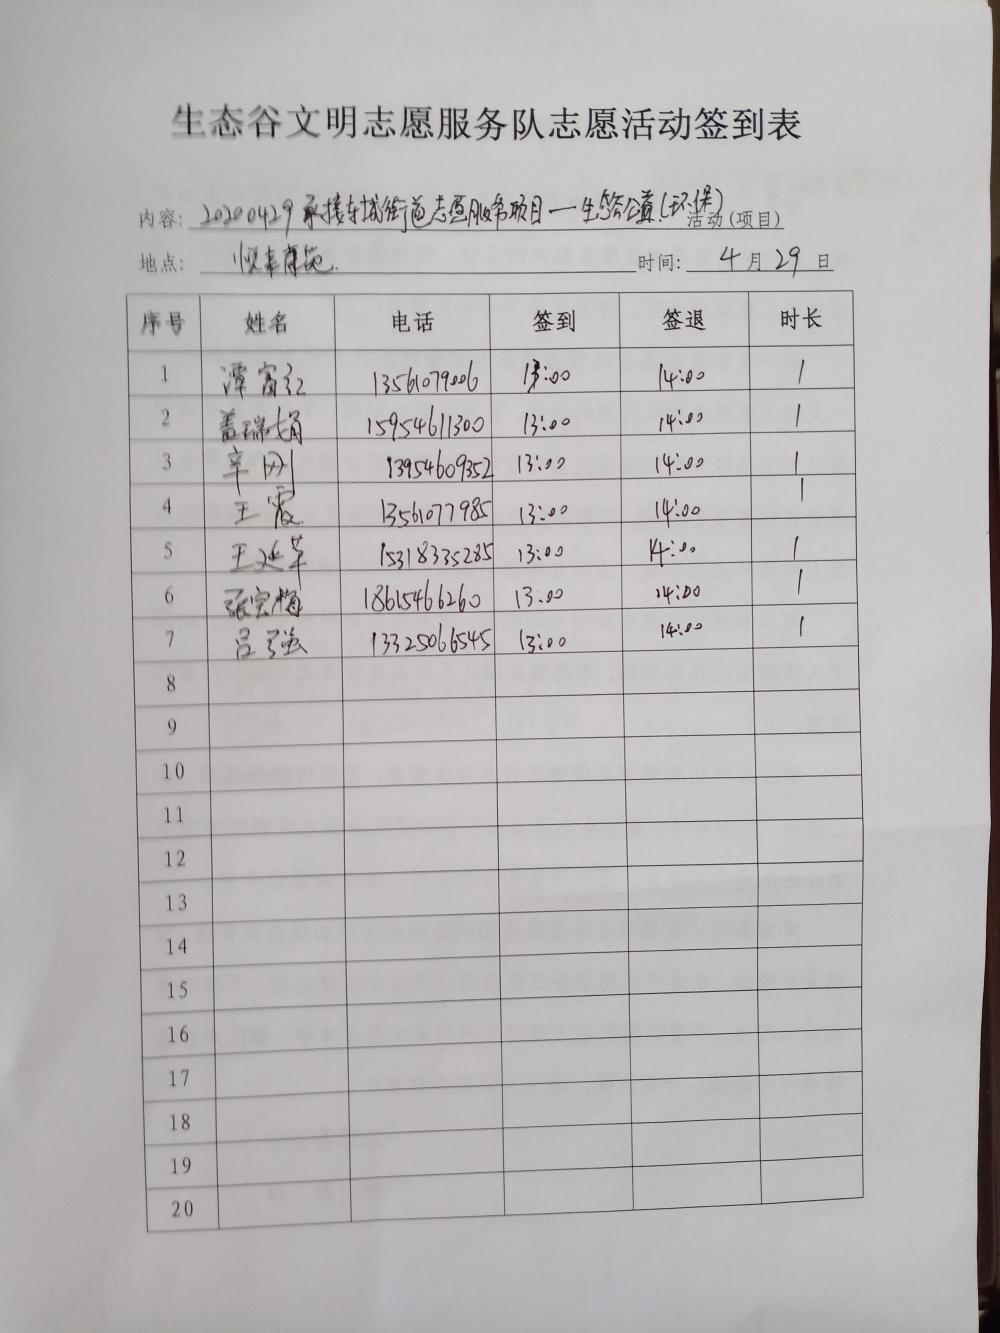 生态谷文明志愿服务队志愿活动签到表
内容: 20200429承接东城街道志愿服务项目—生态谷公益(环保) 活动(项目)
地点: 悦来 时间: 4月29日
序号 姓名 电话 签到 签退 时长
1 谭富红 13561079006 13:00 14:00 1
2 盖瑞娟 15954611300 13:00 14:00 1
3 辛刚 13954609352 13:00 14:00 1
4 王霞 13561077985 13:00 14:00 1
5 王延华 15318335285 13:00 14:00 1
6 张宝梅 18615466260 13:00 14:00 1
7 吕强 13325066545 13:00 14:00 1
8
9
10
11
12
13
14
15
16
17
18
19
20